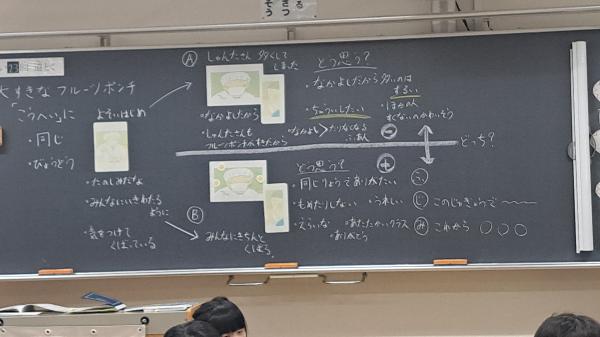 大すきなフルーツポンチ
「こうへい」に
・同じ
・びょうどう
よそいはじめ
・たのしみだな
・みんなにいきわたる
ように
・気をつけて
くばっている
Ⓐ しゅんたさん 多くして
しまった
・なかよしだから
・しゅんたさんも
フルーツポンチがすきだから
どう思う?
・なかよしだから多いのは
ずるい
・ちゅういしたい
・ほかの人
すくないのかわいそう
・なかよし>たりなくなる
ふあん
⊖
どっち?
Ⓑ みんなにきちんと
くばろう
どう思う?
⊕
・同じりょうでありがたい
・もめたりしない
・うれしい
・えらいな
・あたたかいクラス
・ありがとう
ふ
じ このじゅぎょうで〜〜
み これから 〇〇〇